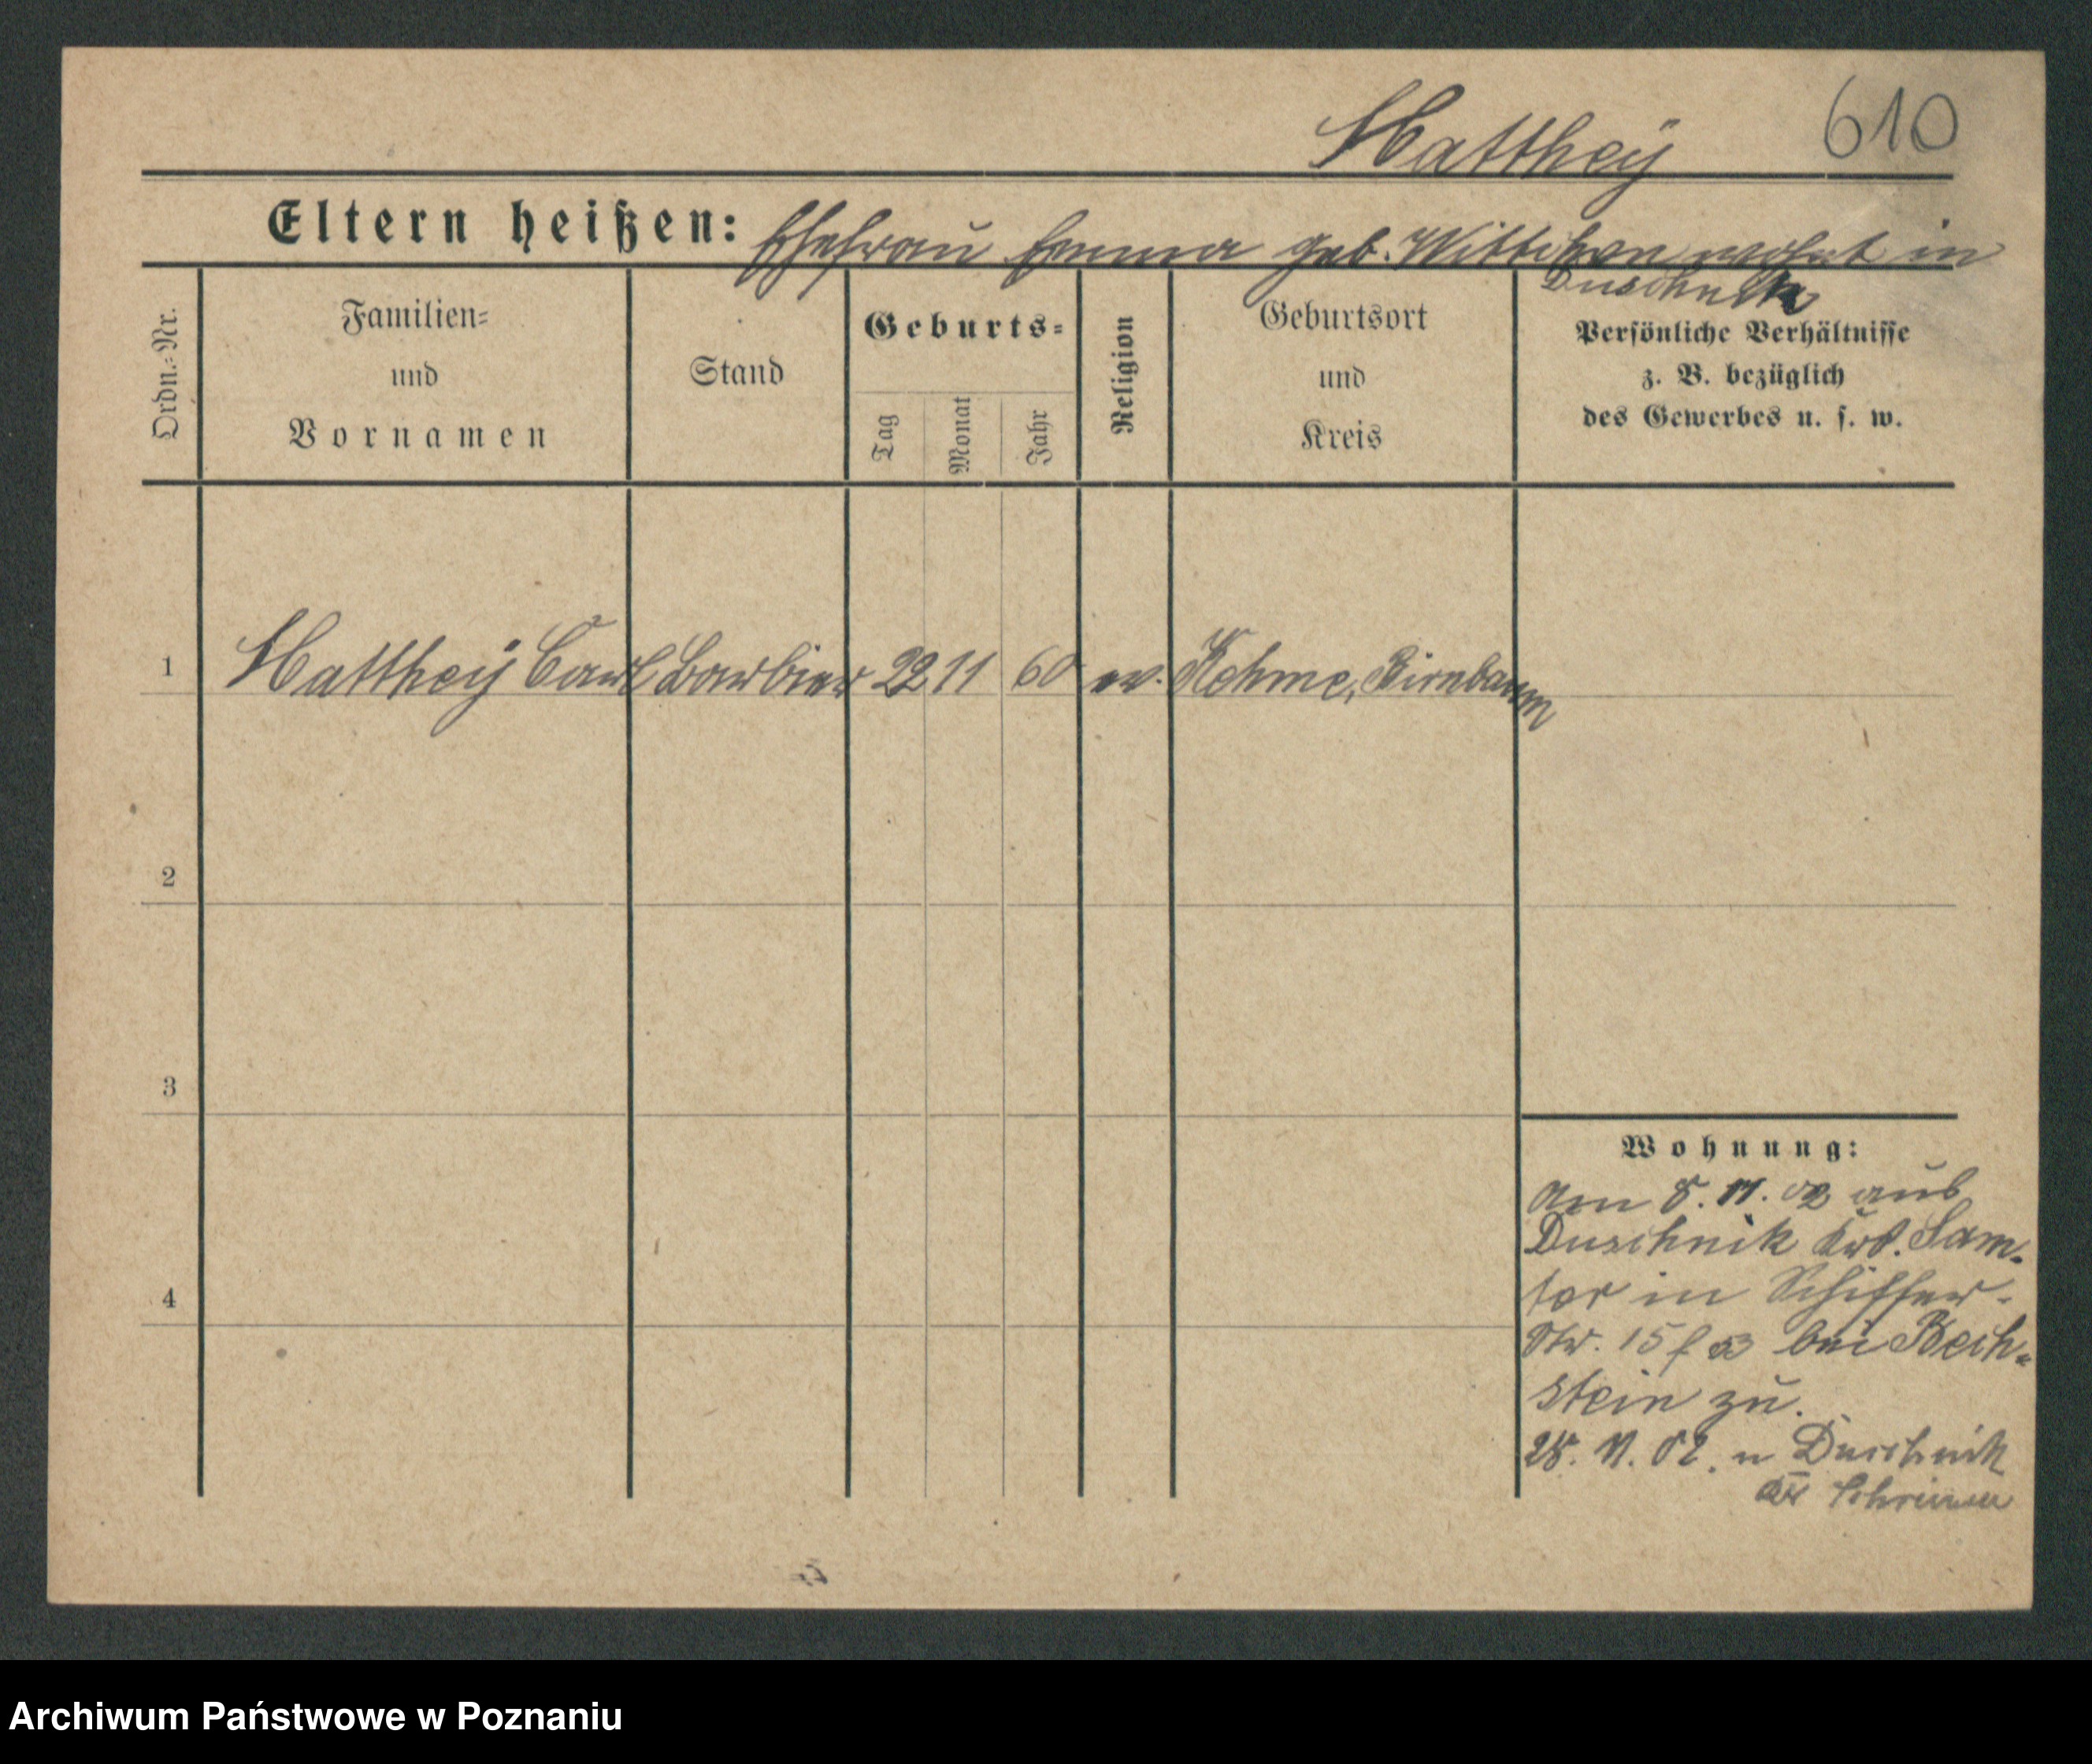 Matthey 610
Eltern heißen: Ehefrau Emma geb. Wittchen wohnt in
Duschnik
Ordn.-Nr.
Familien-
und
Vornamen
Stand
Geburts-
Tag
Monat
Jahr
Religion
Geburtsort
und
Kreis
Persönliche Verhältnisse
z. B. bezüglich
des Gewerbes u. s. w.
1 Matthey Carl Barbier 22 11 60 ev. Kehme, Birnbaum
2
3
4
Wohnung:
Am 8. 11. 02 aus
Duschnik Krs. Sam-
ter in Schiffer-
Str. 15 bei Bech-
stein zu.
28. 11. 02. n Duschnik
Archiwum Państwowe w Poznaniu